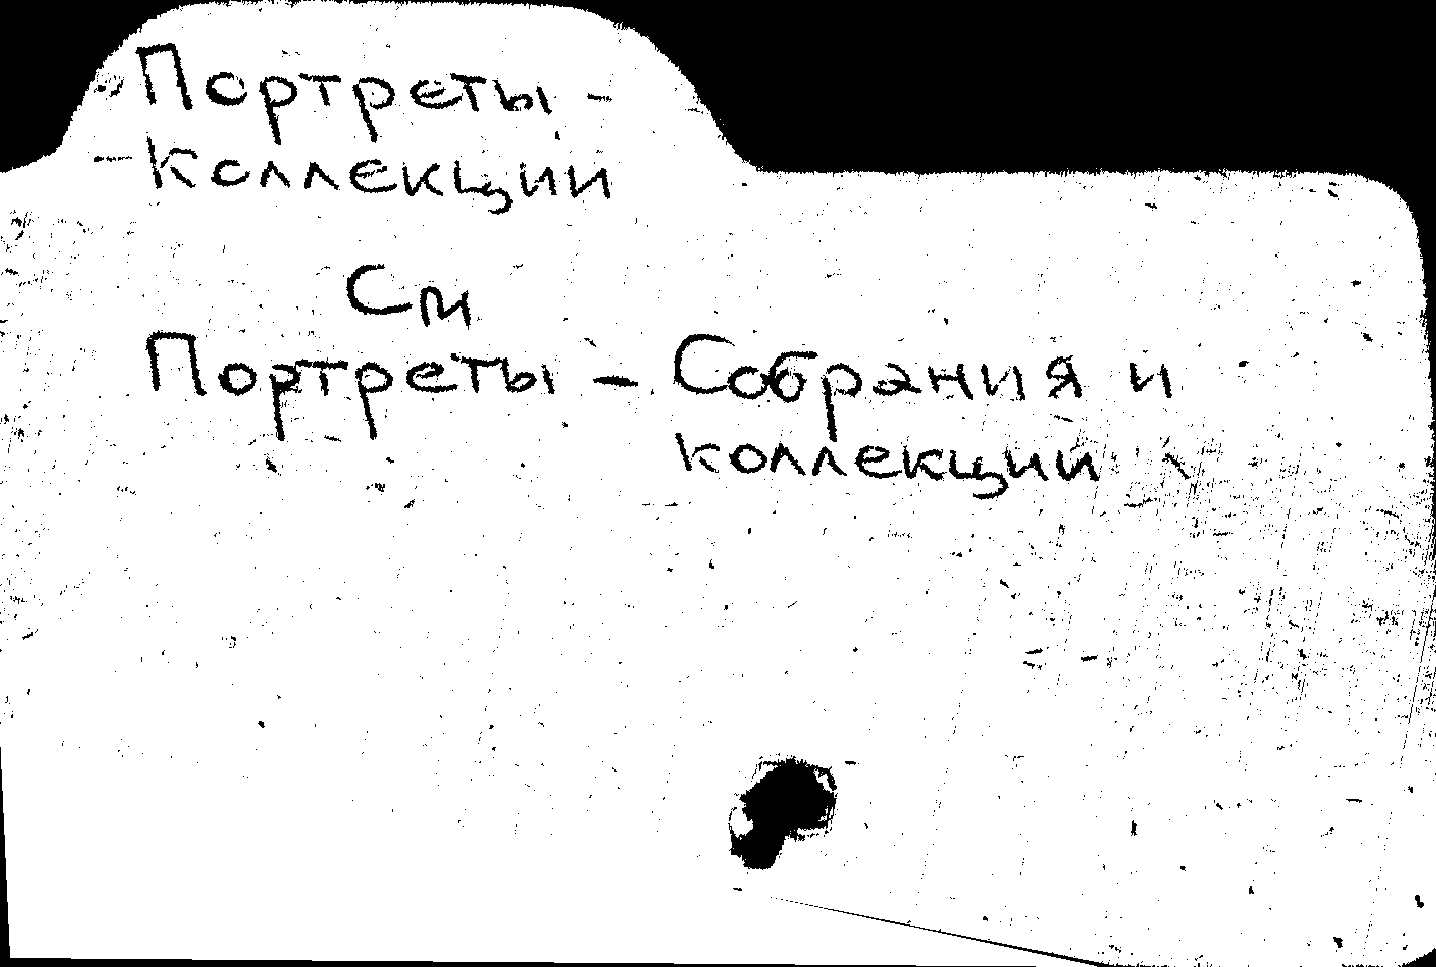 Портреты -
- коллекции
См
Портреты - Собрания и
коллекции